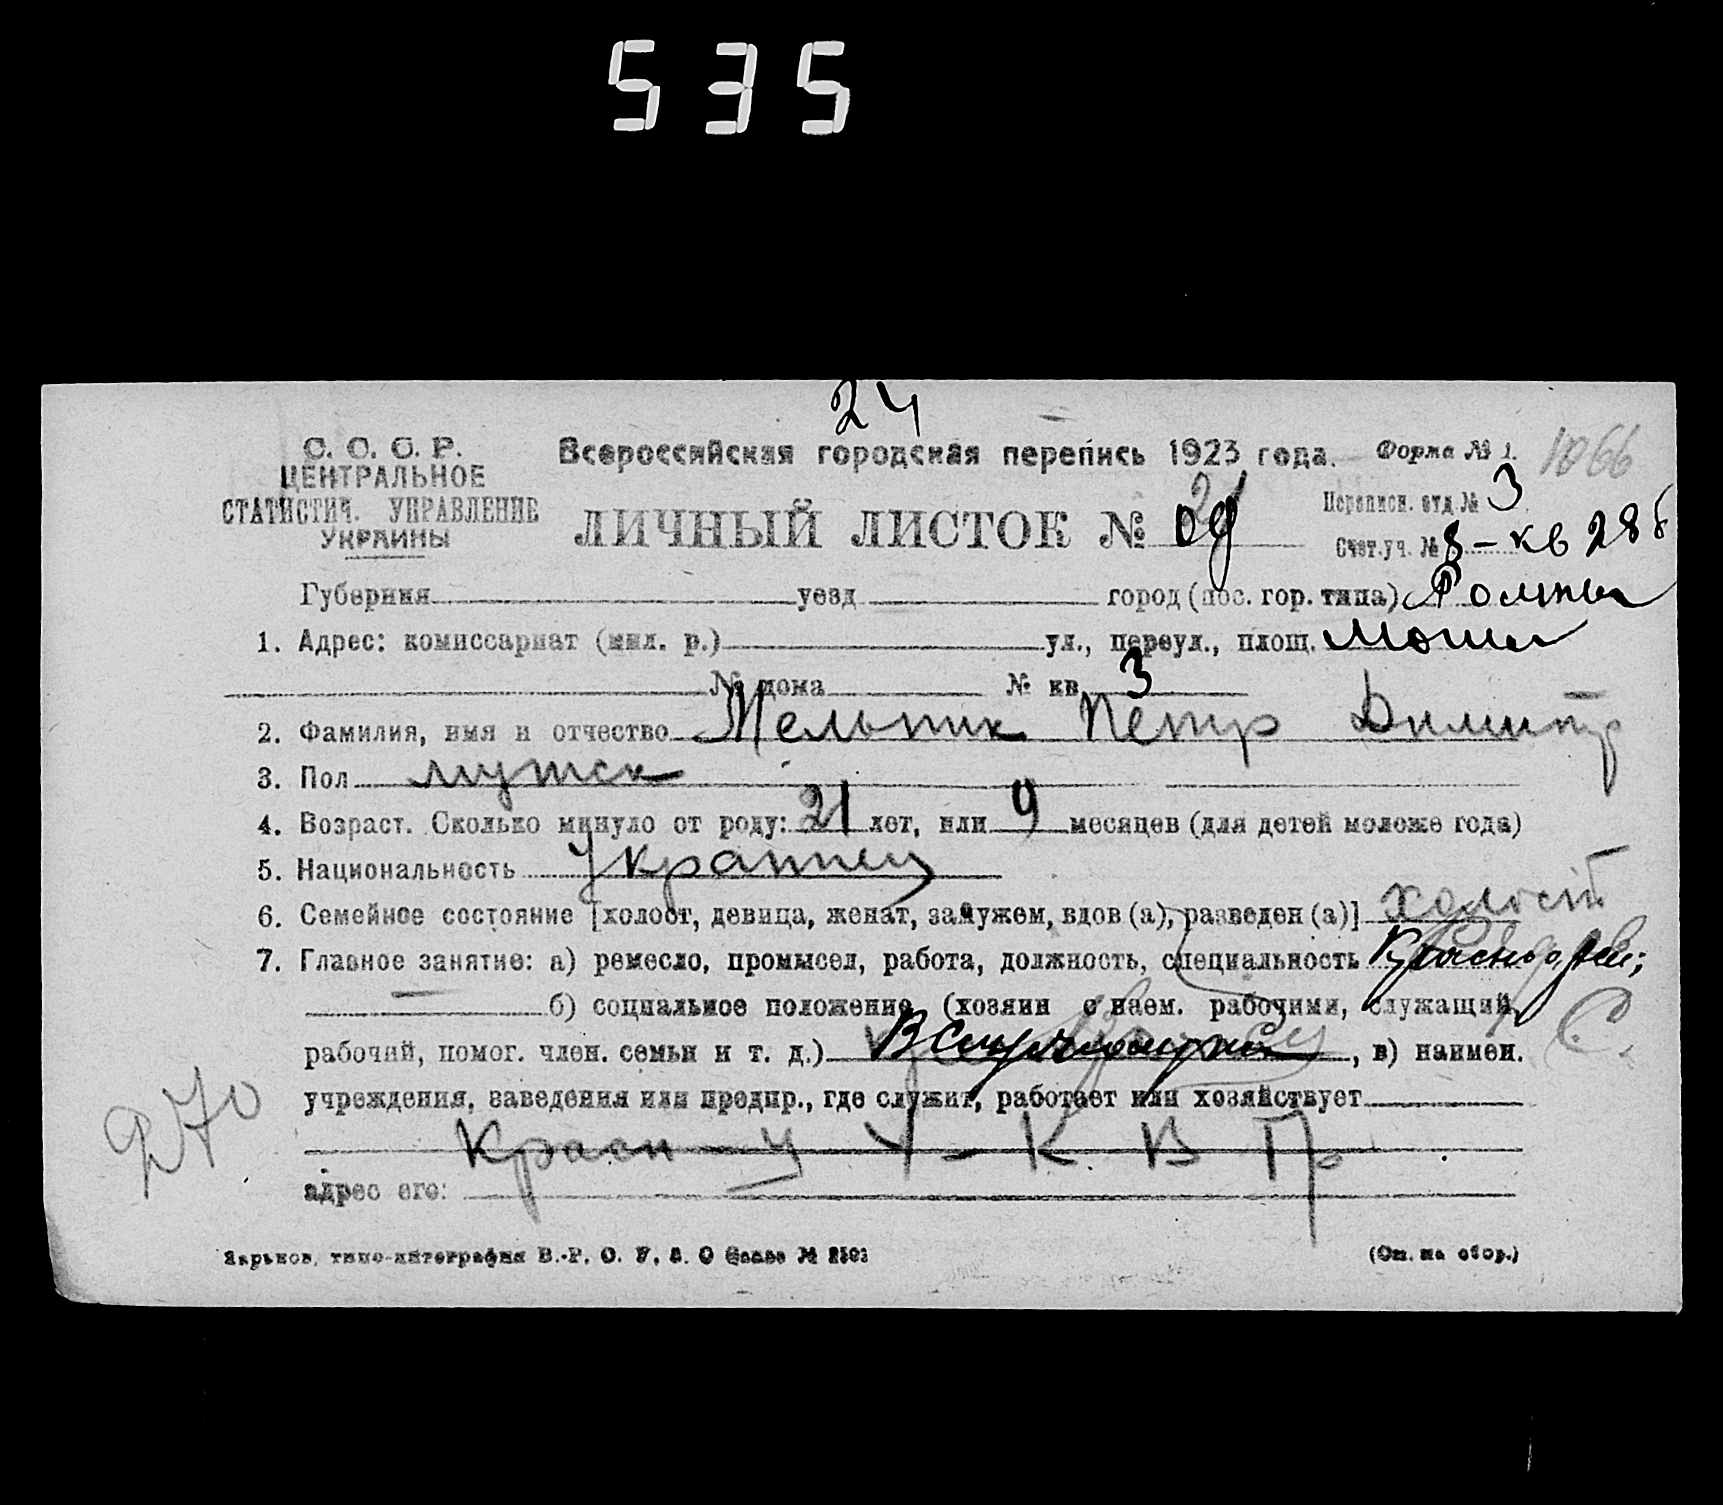 535
24
С. С. С. Р.
ЦЕНТРАЛЬНОЕ
СТАТИСТИЧ. УПРАВЛЕНИЕ
УКРАИНЫ
Всероссийская городская перепись 1923 года. Форма № 1. 1066
ЛИЧНЫЙ ЛИСТОК №
Переписн. отд. № 3
Счет. уч. № 8 - кв 286
Губерния уезд город (пос. гор. типа) Ромны
1. Адрес: комиссариат (мил. р.) ул., переул., площ.
№ дома № кв. 3
2. Фамилия, имя и отчество Мельник Петр Димитр
3. Пол мужск
4. Возраст. Сколько минуло от роду: 21 лет, или 9 месяцев (для детей моложе года)
5. Национальность Украинец
6. Семейное состояние [холост, девица, женат, замужем, вдов (а), разведен (а)] холост
7. Главное занятие: а) ремесло, промысел, работа, должность, специальность
б) социальное положение (хозяин с наем. рабочими, служащий,
рабочий, помог. член. семьи и т. д.) , в) наимен.
учреждения, заведения или предпр., где служит, работает или хозяйствует
270
адрес его:
Харьков, типо-литография
(См. на обор.)